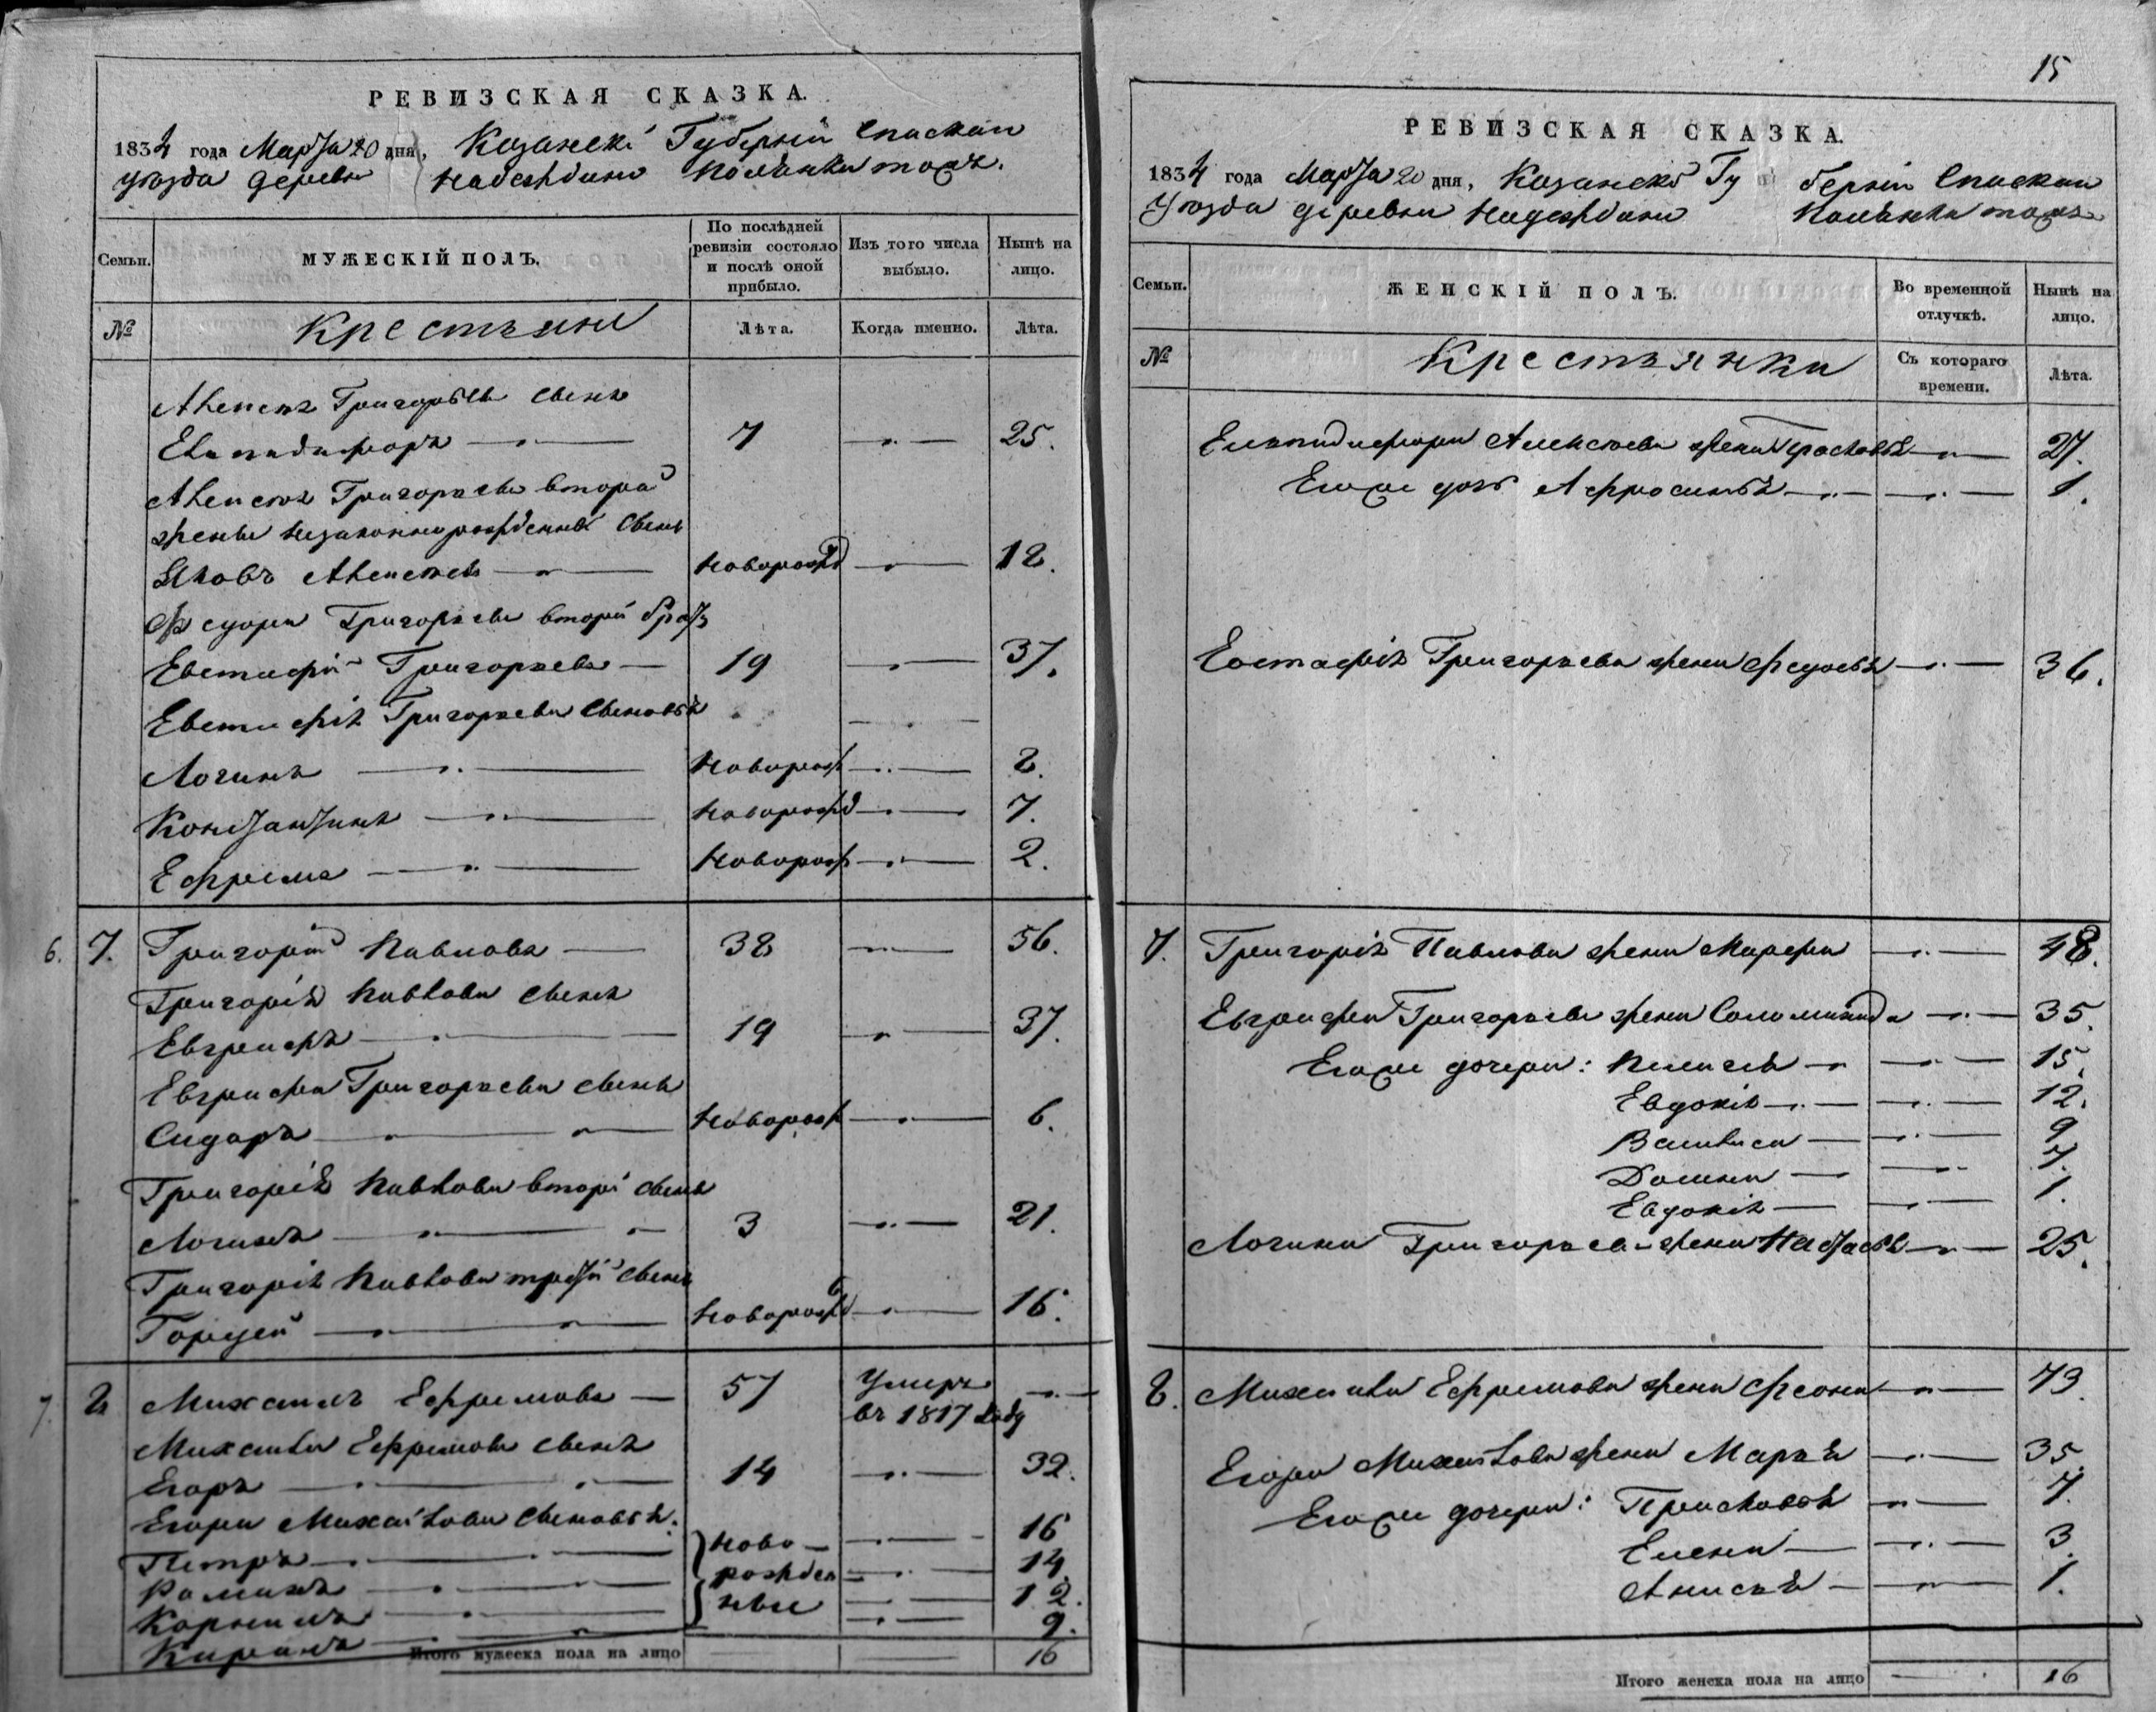 РЕВИЗСКАЯ СКАЗКА.
1834 года Марта 20 дня, Казанской Губернии Спаской
уезда деревни Надеждины тожъ.
Семьи.
МУЖЕСКІЙ ПОЛЪ.
По послѣдней ревизіи состояло и послѣ оной прибыло.
Изъ того числа выбыло.
Нынѣ на лицо.
№
Крестьяне
Лѣта.
Когда именно.
Лѣта.
Алексея Григорьева сынъ
Елпидифоръ 7 25.
Алексея Григорьева второй
жены незаконнорожденный сынъ
Яковъ Алексеевъ новорожд 18.
Федора Григорьева второй братъ
Евстафий Григорьевъ 19 37.
Евстафія Григорьева сыновья
Логинъ новорож 8.
Константинъ новорожд 7.
Ефремъ новорож 2.
6. 7. Григорий Павловъ 38 56.
Григорія Павлова сынъ
Евграфъ 19 37.
Евграфа Григорьева сынъ
Сидоръ новорож 6.
Григорія Павлова вторый сынъ
Логинъ 3 21.
Григорія Павлова третий сынъ
Гордей новорожд 16.
7. 8 Михаилъ Ефремовъ 57 Умеръ
въ 1817 году
Михаила Ефремова сынъ
Егоръ 14 32.
Егора Михайлова сыновья:
Петръ ново 16
Романъ рожден 14
Корнилъ ные 12.
Кирилъ 9.
Итого мужеска пола на лицо 16
15
РЕВИЗСКАЯ СКАЗКА.
1834 года Марта 20 дня, Казанской Губерніи Спаской
Уезда деревни Надеждины тожъ
Семьи.
ЖЕНСКІЙ ПОЛЪ.
Во временной отлучкѣ.
Нынѣ на лицо.
№
Крестьянки
Съ котораго времени.
Лѣта.
Елпидифора Алексеева жена Прасковья 27.
Егоже дочь Афросинья 1.
Евстафія Григорьева жена Федосья 36.
7. Григорія Павлова жена Марфа 48.
Евграфа Григорьева жена Соломанида 35.
Егоже дочери: Пелагея 15.
Евдокія 12.
Василиса 9
Домна 7.
Евдокія 1.
Логина Григорьева жена Настасья 25.
8. Михаила Ефремова жена Феона 73
Егора Михайлова жена Марья 35.
Егоже дочери: Прасковья 7.
Елена 3.
Анисья 1.
Итого женска пола на лицо 16